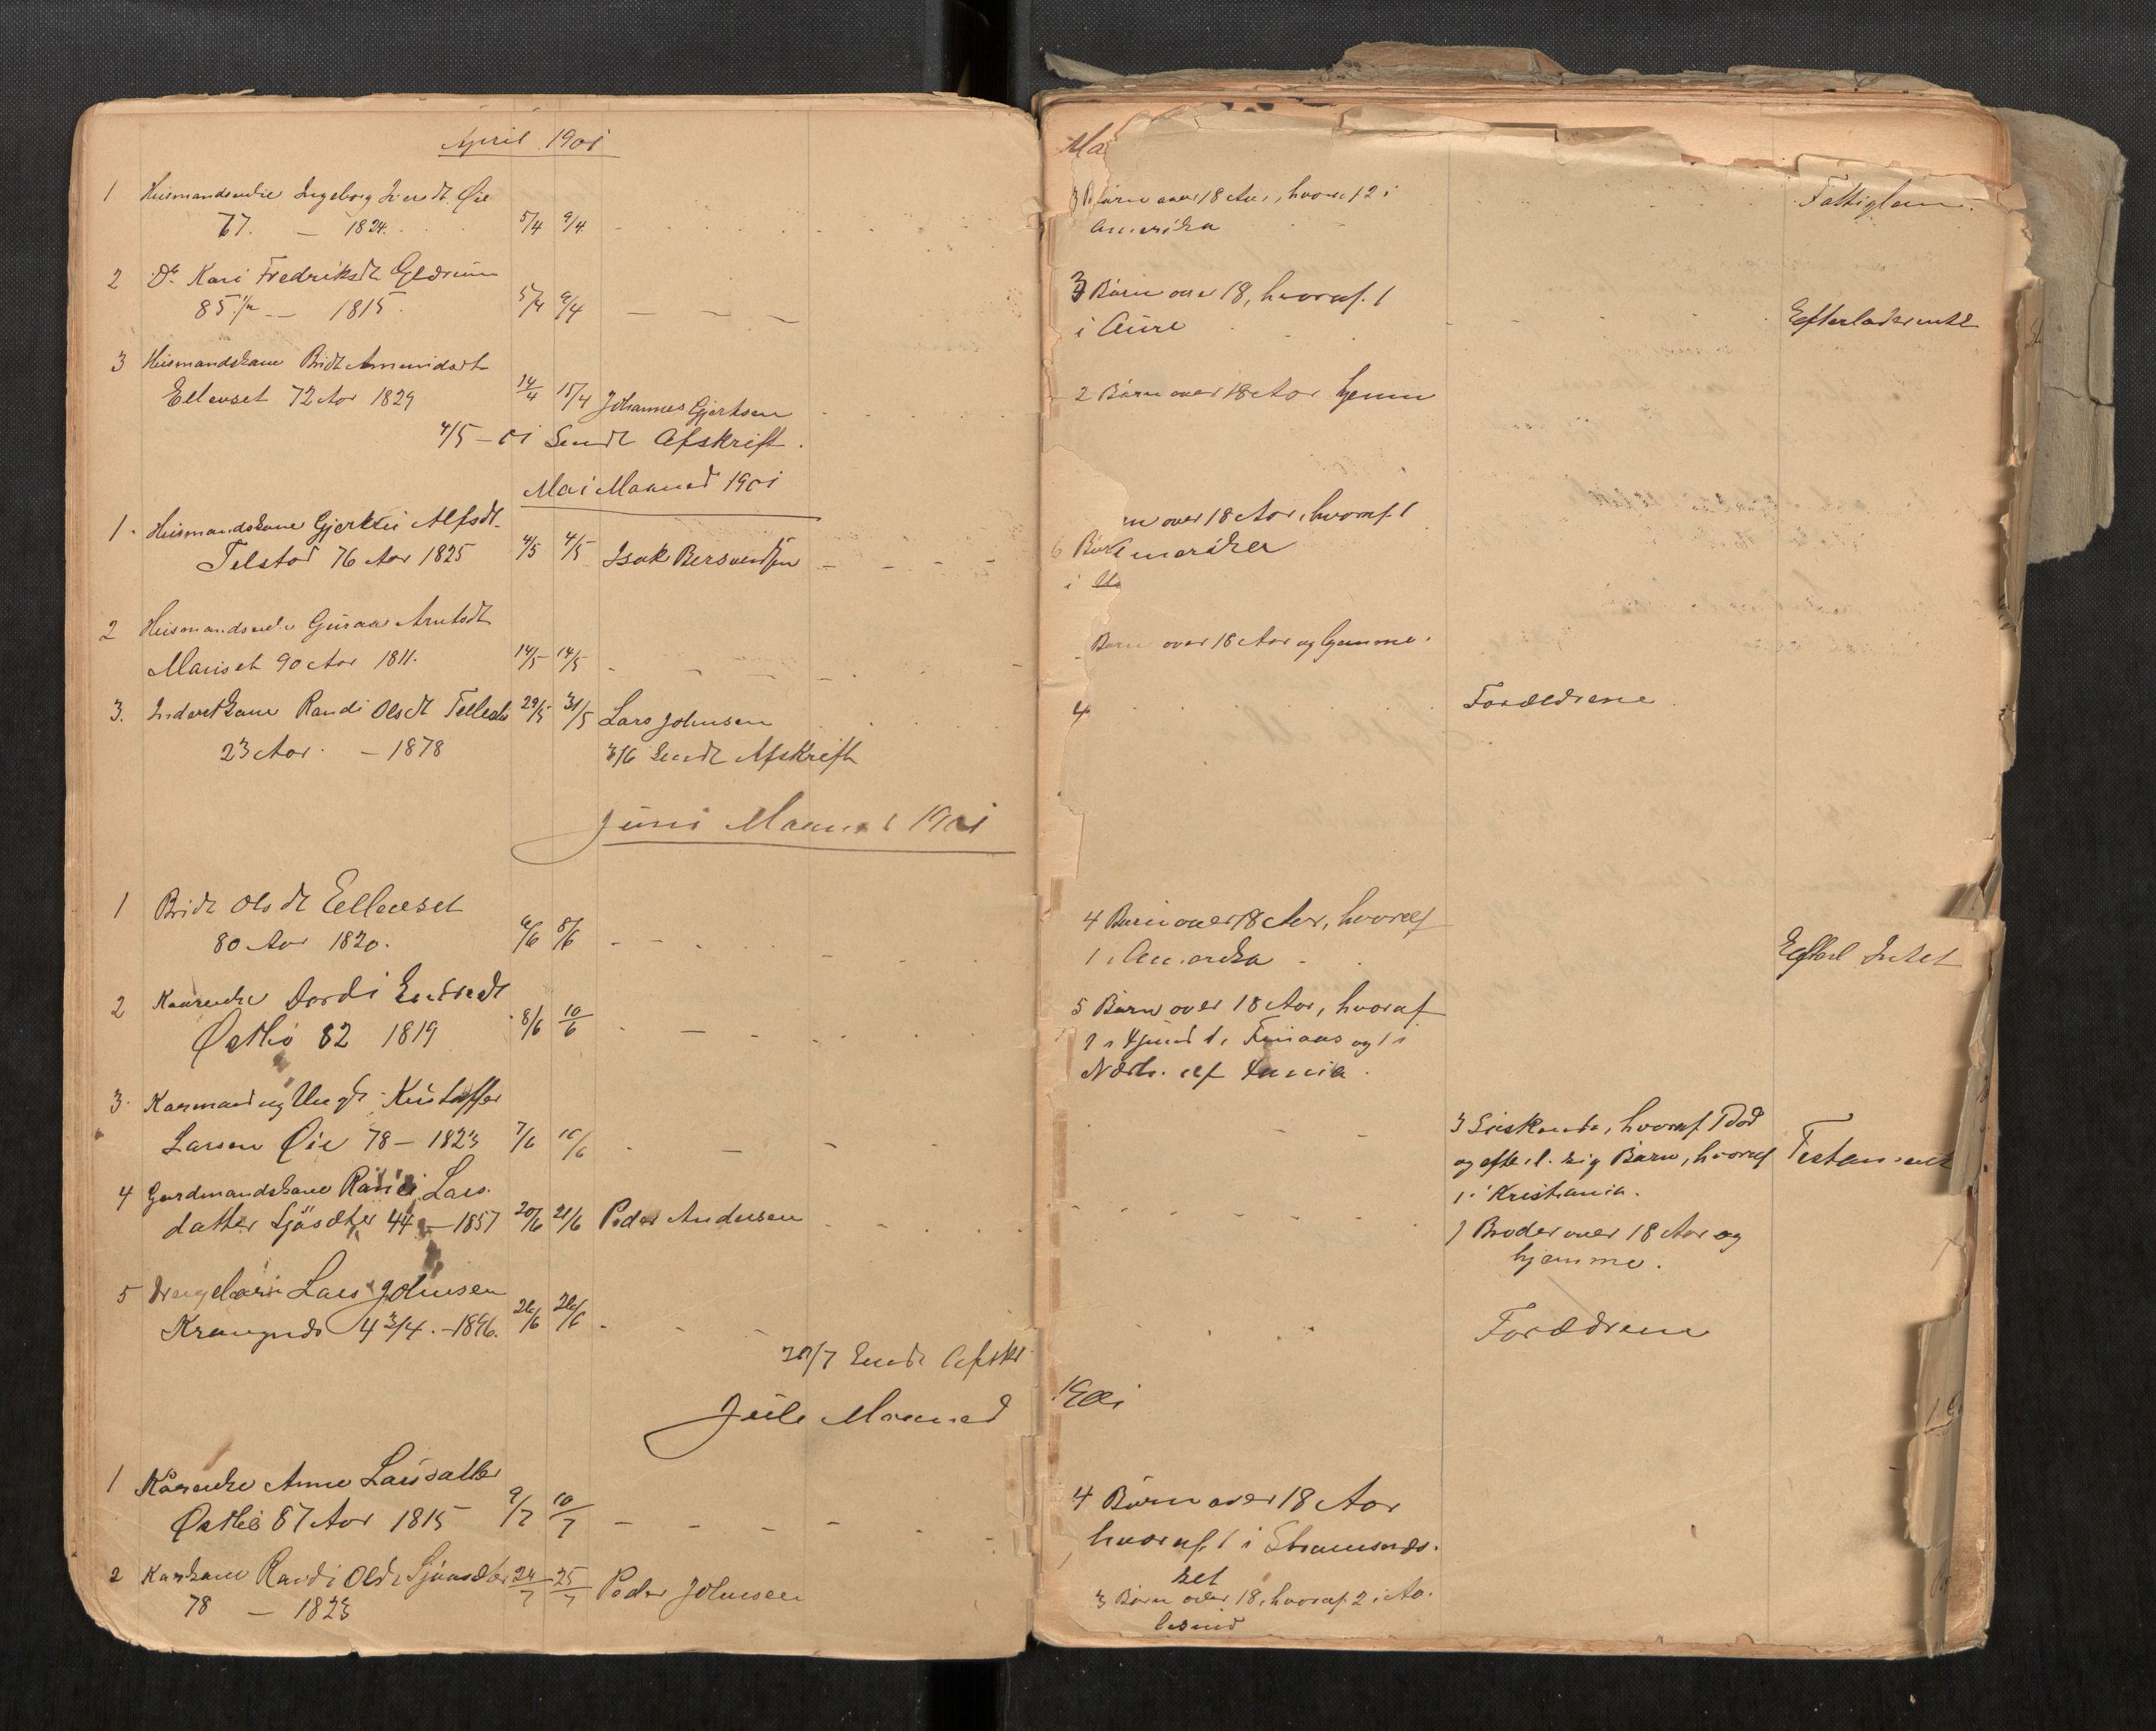 April 1901
1 Huusmandsenke Ingeborg Øie
77. — 1824. 5/4 9/4
2 Do Kari Fredriksdt
85 1/2 — 1815. 5/4 9/4
3 Huusmandskone Bridt Amundsdt
Ellevset 72 Aar 1829 14/4 15/4 Johannes Gjertsen
4/5 - 01 Sendt Afskrift.
Mai Maaned 1901
1. Huusmandskone Alfsdt.
Telstad 76 Aar 1825 4/5 4/5 Isak Bersvendsen
2 Guraa Arntsdt
90 Aar 1811. 14/5 14/5
3. Randi Olsdt 29/5 31/5 Lars Johnsen
23 Aar. — 1878 3/6 Sendt Afskrift
Juni Maaned 1901
1 Bridt Olsdt Ellevset
80 Aar 1820. 6/6 8/6
2 Kaarenke Dordi
Østbø 82 1819 8/6 10/6
3. Kaarmand og Ungk.
Larsen Øie 78 — 1823 7/6 10/6
4 Gardmandskone Randi Lars
datter Sjøsæter 44 — 1857 20/6 21/6 Peder Andersen
5 Drengebarn Lars Johnsen
4 3/4. — 1896. 26/6 26/6
30/7 Sendt Afskr
Juli Maaned
1 Kaarenke Anne Larsdatter
Østbø 87 Aar 1815 9/7 10/7
2 Kaarkone Randi Olsdt Sjøsæter 24/7 25/7 Peder Johnsen
78 — 1823
Ma
3 Børn over 18 Aar, hvoraf 2 i
Amerika
Fattiglem.
3 Børn over 18, hvoraf 1
i Aure
Efterlader intet
2 Børn over 18 Aar hjemme
over 18 Aar, hvoraf 1
6 Bør Amerika
i
Børn over 18 Aar og hjemme.
4
Forældrene
4 Børn over 18 Aar, hvoraf
1 i Amerika
Efterl Intet
5 Børn over 18 Aar, hvoraf
1 i 1 i og 1 i
Nærh. af
3 Søskende, hvoraf 1 død
og efterl. sig Børn, hvoraf
1 i Kristiania.
Testament
1 Broder over 18 Aar og
hjemme.
Forældrene
1901
4 Børn over 18 Aar
hvoraf 1 i
3 Børn over 18, hvoraf 2 i Aa-
lesund